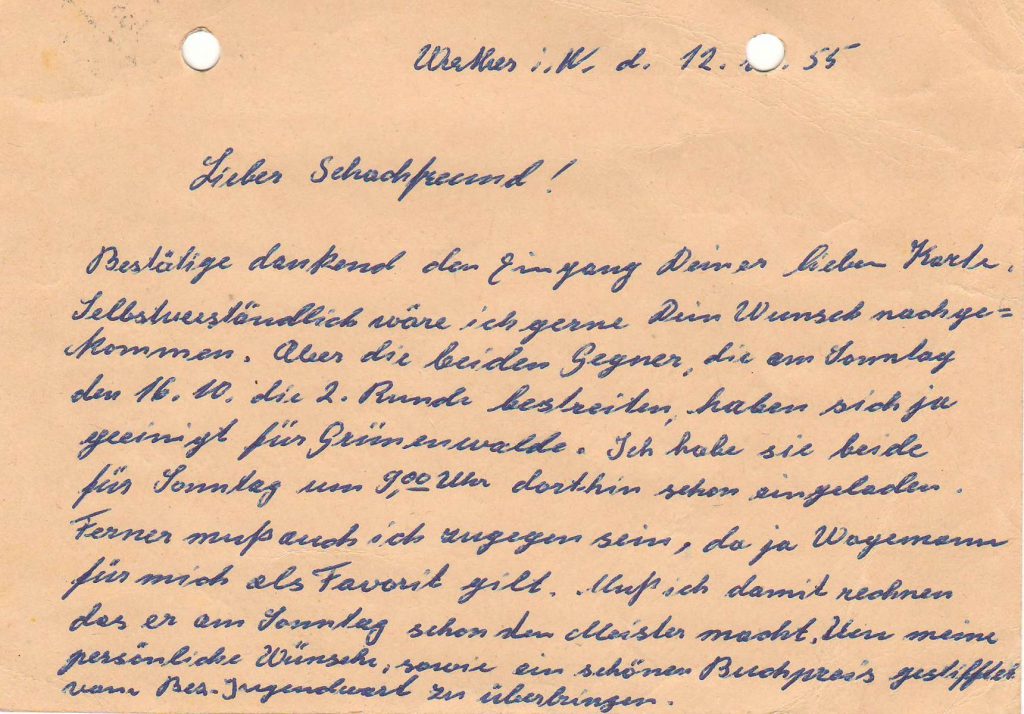 Werther i. W. d. 12. 55
Lieber Schachfreund!
Bestätige dankend den Eingang Deiner lieben Karte.
Selbstverständlich wäre ich gerne Dein Wunsch nachge=
kommen. Aber die beiden Gegner, die am Sonntag
den 16. 10. die 2. Runde bestreiten, haben sich ja
geeinigt für Grünenwalde. Ich habe sie beide
für Sonntag um 9,00 Uhr dorthin schon eingeladen.
Ferner muß auch ich zugegen sein, da ja Wagemann
für mich als Favorit gilt. Muß ich damit rechnen
das er am Sonntag schon den Meister macht. Um meine
persönliche Wünsche, sowie ein schönen Buchpreis gestifftet
vom Bez.-Jugendwart zu überbringen.